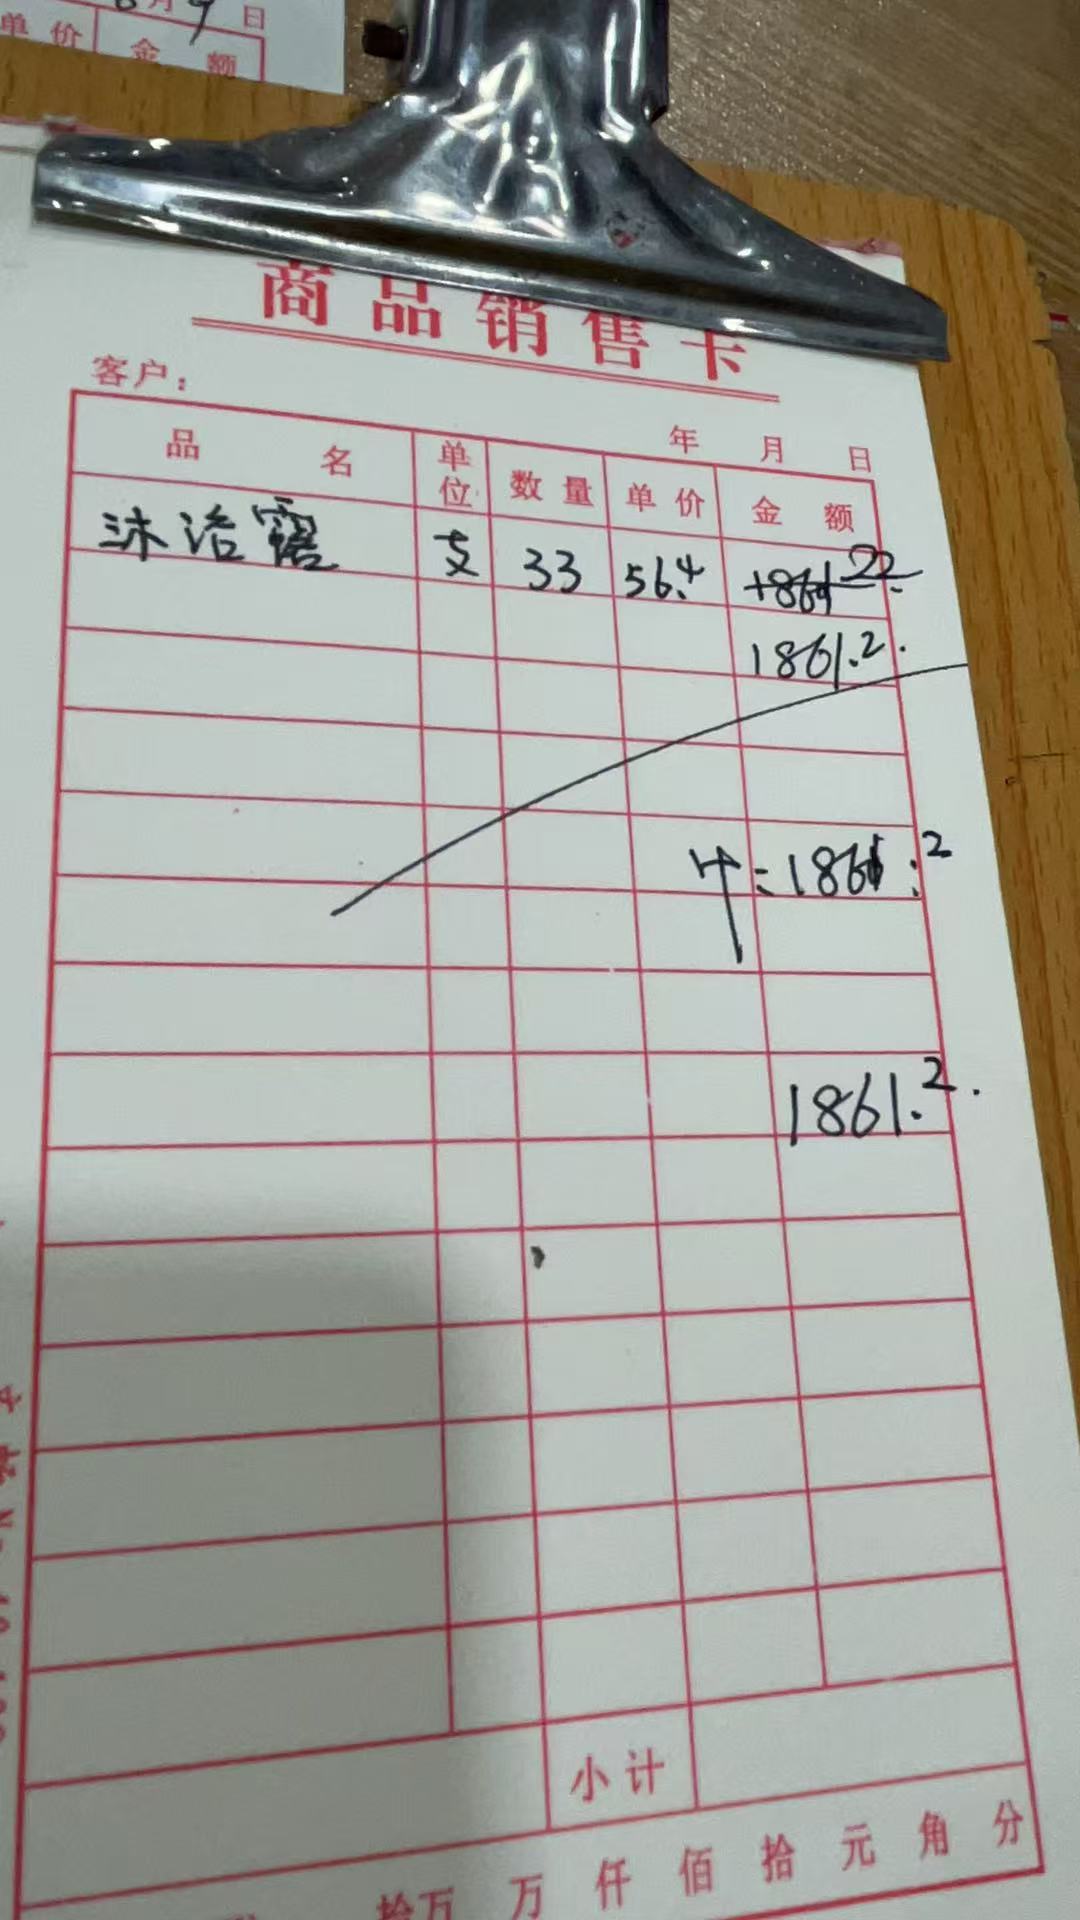 月9日
单价 金额
商品销售卡
客户：
年 月 日
品名 单位 数量 单价 金额
沐浴露 支 33 56.4
1861.2.
=1861.2
1861.2.
小计
拾万 万 仟 佰 拾 元 角 分